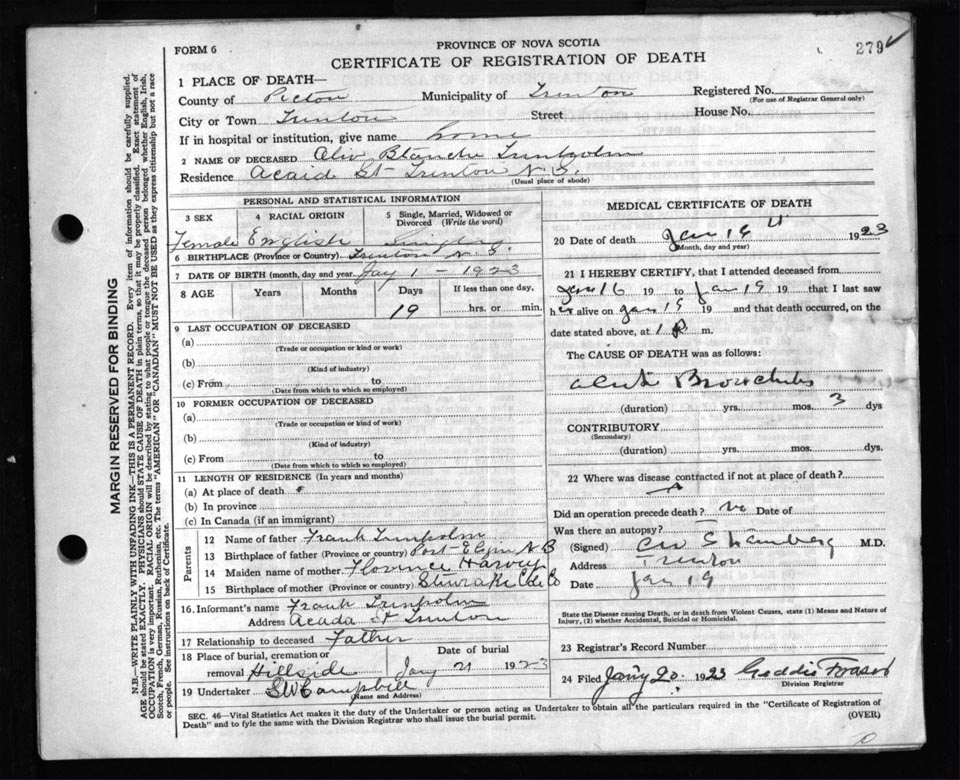 279
FORM 6
PROVINCE OF NOVA SCOTIA
CERTIFICATE OF REGISTRATION OF DEATH
1 PLACE OF DEATH—
County of Pictou Municipality of Trenton Registered No.
(For use of Registrar General only)
City or Town Trenton Street House No.
If in hospital or institution, give name home
2 NAME OF DECEASED Oliv Blanche
Residence Acaid St Trenton N.S.
(Usual place of abode)
PERSONAL AND STATISTICAL INFORMATION
3 SEX 4 RACIAL ORIGIN 5 Single, Married, Widowed or Divorced (Write the word)
Female English Single
6 BIRTHPLACE (Province or Country) Trenton N.S
7 DATE OF BIRTH (month, day and year) Jay 1 - 1923
8 AGE Years Months Days If less than one day,
19 hrs. or min.
9 LAST OCCUPATION OF DECEASED
(a)
(Trade or occupation or kind or work)
(b)
(Kind of industry)
(c) From to
(Date from which to which so employed)
10 FORMER OCCUPATION OF DECEASED
(a)
(Trade or occupation or kind of work)
(b)
(Kind of industry)
(c) From to
(Date from which to which so employed)
11 LENGTH OF RESIDENCE (In years and months)
(a) At place of death
(b) In province
(c) In Canada (if an immigrant)
Parents
12 Name of father Frank
13 Birthplace of father (Province or country) Port-Elgin N B
14 Maiden name of mother Florence Harvey
15 Birthplace of mother (Province or country)
16. Informant's name Frank
Address Acada St Trenton
17 Relationship to deceased Father
18 Place of burial, cremation or removal Hillside Date of burial Jay 21 1923
19 Undertaker SW Campbell
(Name and Address)
MEDICAL CERTIFICATE OF DEATH
20 Date of death Jan 19 1923
(Month, day and year)
21 I HEREBY CERTIFY, that I attended deceased from
Jan 16 19 to Jan 19 19 that I last saw
her alive on Jan 19 19 and that death occurred, on the
date stated above, at 1 P m.
The CAUSE OF DEATH was as follows:
acute Bronchitis
(duration) yrs. mos. 3 dys
CONTRIBUTORY
(Secondary)
(duration) yrs. mos. dys.
22 Where was disease contracted if not at place of death?
Did an operation precede death? no Date of
Was there an autopsy?
(Signed) M.D.
Address Trenton
Date Jan 19
State the Disease causing Death, or in death from Violent Causes, state (1) Means and Nature of Injury, (2) whether Accidental, Suicidal or Homicidal.
23 Registrar's Record Number
24 Filed Jany 20 1923 Geddie Fraser
Division Registrar
SEC. 46—Vital Statistics Act makes it the duty of the Undertaker or person acting as Undertaker to obtain all the particulars required in the "Certificate of Registration of
Death" and to fyle the same with the Division Registrar who shall issue the burial permit. (OVER)
MARGIN RESERVED FOR BINDING
N.B.—WRITE PLAINLY WITH UNFADING INK—THIS IS A PERMANENT RECORD. Every item of information should be carefully supplied.
AGE should be stated EXACTLY. PHYSICIANS should STATE CAUSE OF DEATH in plain terms, so that it may be properly classified. Exact statement of
OCCUPATION is very important. RACIAL ORIGIN will be described by stating to what people or tongue the deceased person belonged whether English, Irish,
Scotch, French, German, Russian, Ruthenian, etc. The terms "AMERICAN" OR "CANADIAN" MUST NOT BE USED as they express citizenship but not a race
or people. See instructions on back of Certificate.